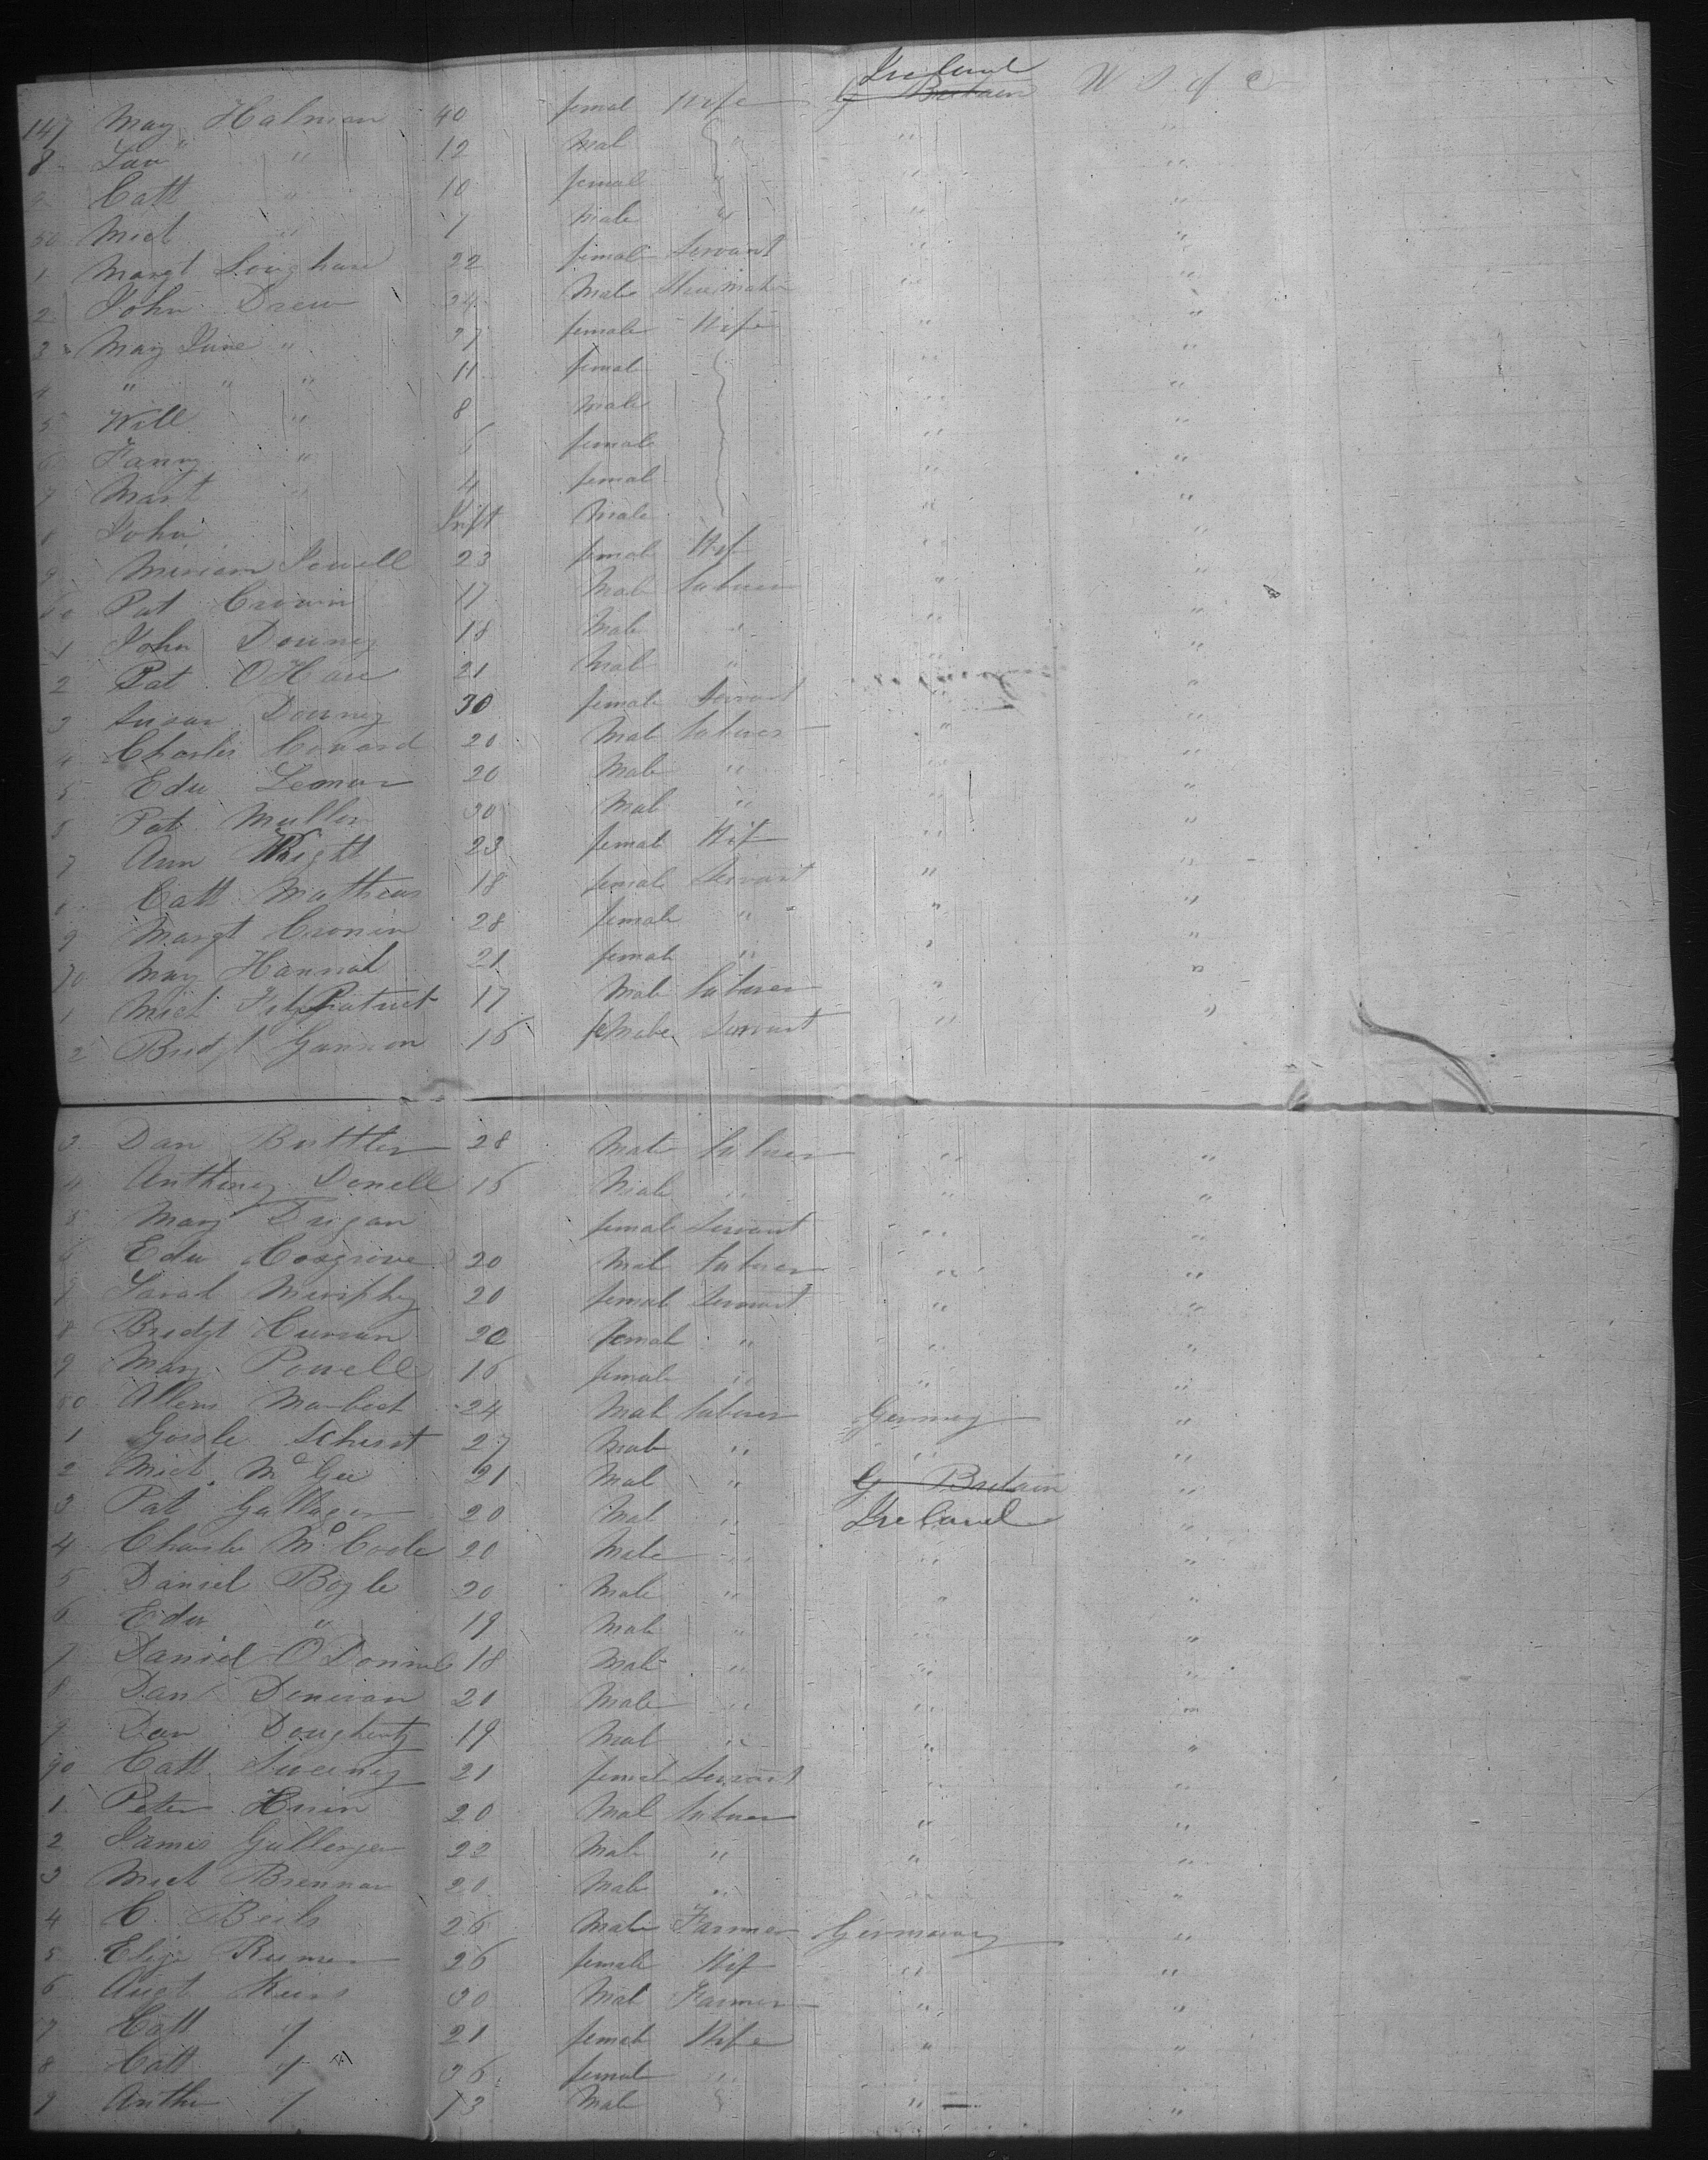 Ireland
147 May Halman 40 femal Wife G Britain W S of A
8 " " 12 Mal " " "
9 Catt " 10 femal " " "
50 Mict " 7 Male " " "
1 Margt Loughan 22 femal Servant " "
2 John Drew 24 Male Shumaker " "
3 May Jane " 27 female Wife " "
4 " " " 11 femal " "
5 Will " 8 Male " "
6 Fanny " 6 female " "
7 Mart " 4 femal " "
8 John Inft Male " "
9 Miriam Jewell 23 femal Wif " "
60 Pat Crowin 17 Male Laburer " "
1 John Downey 18 Male " " "
2 Pat OHare 21 Mal " " "
3 Susan Downey 30 female Servant " "
4 Charles Coward 20 Mal Laburer " "
5 Edw 20 Male " " "
6 Pat Mullen 30 Mal " " "
7 Ann Wright 23 femal Wif " "
8 Catt Mathews 18 femal Servant " "
9 Margt Cronin 28 female " " "
70 May Hannah 21 femal " " "
1 Mict FitzPatrict 17 Male Laburer " "
2 Bridgt Gannon 16 female Servant " "
3 Dan Buttler 28 Male Laburer " "
4 Anthony Donell 16 Male " " "
5 Mary Dugan female Servant " "
6 Edw Cosgrove 20 Mal Laburer " "
7 Sarah Murphey 20 femal Servant " "
8 Bridgt Curran 20 femal " " "
9 Mary Powell 16 female " " "
80 24 Mal Laburer Germny "
1 27 Male " " "
2 Mict McGee 21 Mal " G Britain "
3 Pat Gallager 20 Mal " Ireland "
4 Charles McCole 20 Male " " "
5 Daniel Bogle 20 Male " " "
6 Edw " 19 Male " " "
7 Daniel O'Donnel 18 Male " " "
8 Dan Donevan 20 Male " " "
9 Dan Doughenty 19 Mal " " "
90 Catt Sweeney 21 femal Servant " "
1 Peter 20 Mal Laburer " "
2 James Gallerger 22 Mal " " "
3 Mict Brennan 20 Male " " "
4 C. 26 Male Farmer Germany "
5 26 female Wif " "
6 Augt 30 Mal Farmer " "
7 Catt " 21 femal Wife " "
8 Catt " 36 femal " "
9 " 13 Male " "